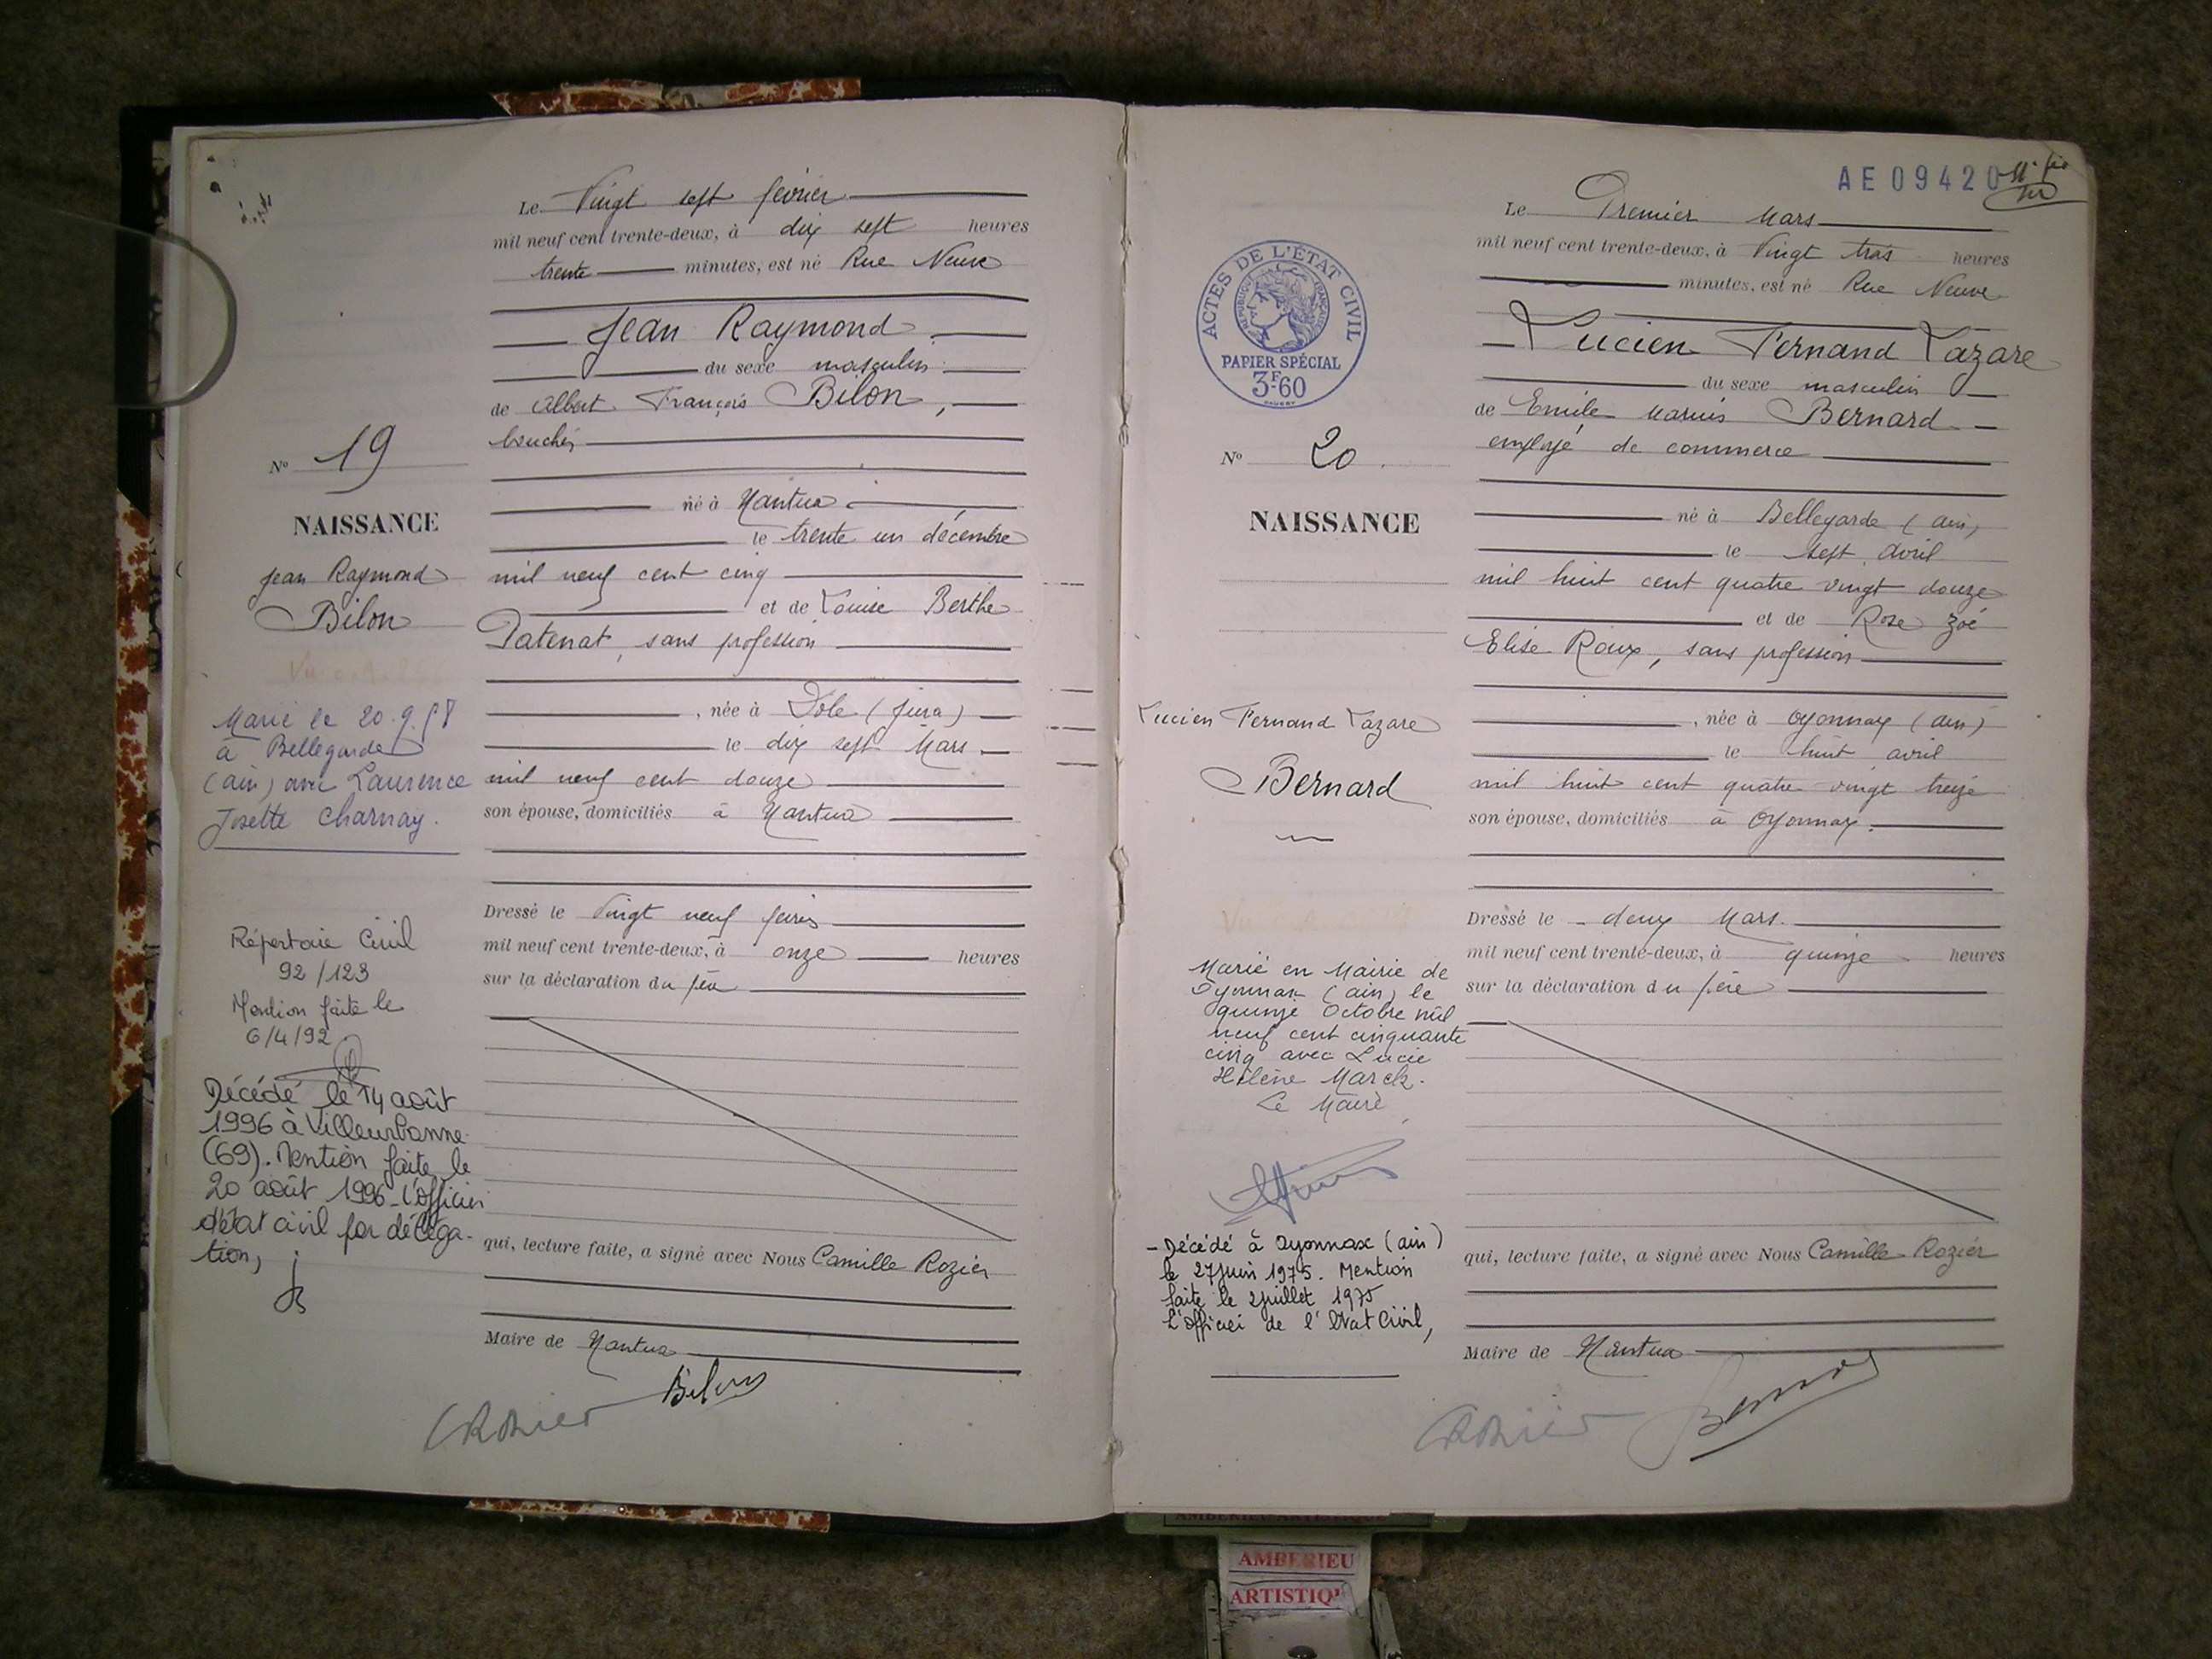 Le Vingt sept février
mil neuf cent trente-deux, à dix sept heures
trente minutes, est né Rue Neuve
Jean Raymond
du sexe masculin
de Albert François Bilon,
boucher
Nº 19
né à Nantua
NAISSANCE
le trente un décembre
Jean Raymond
mil neuf cent cinq
Bilon
et de Louise Berthe
Patenat, sans profession
Marié le 20.9.58
à Bellegarde
(ain) avec Laurence
Josette Charnay.
, née à Dole (Jura)
le dix sept Mars
mil neuf cent douze
son épouse, domiciliés à Nantua
Dressé le Vingt neuf février
mil neuf cent trente-deux, à onze heures
sur la déclaration du père
Répertoire Civil
92/123
Mention faite le
6/4/92
Décédé le 14 août
1996 à Villeurbanne
(69). Mention faite le
20 août 1996 - l'officier
d'état civil par déléga-
tion,
qui, lecture faite, a signé avec Nous Camille Rozier
Maire de Nantua
Bilon
CRozier
AE 09420
Le Premier Mars
mil neuf cent trente-deux, à Vingt trois heures
minutes, est né Rue Neuve
ACTES DE L'ÉTAT CIVIL
RÉPUBLIQUE FRANÇAISE
PAPIER SPÉCIAL
3F60
Lucien Fernand Lazare
du sexe masculin
de Emile Marius Bernard
employé de commerce
Nº 20
né à Bellegarde (ain)
NAISSANCE
le sept avril
mil huit cent quatre vingt douze
et de Rose Zoé
Elise Roux, sans profession
Lucien Fernand Lazare
Bernard
, née à Oyonnax (ain)
le huit avril
mil huit cent quatre vingt treize
son épouse, domiciliés à Oyonnax.
Dressé le deux Mars.
mil neuf cent trente-deux, à quinze heures
sur la déclaration du père
Marié en Mairie de
Oyonnax (ain) le
quinze Octobre mil
neuf cent cinquante
cinq avec Lucie
Hélène Marck.
Le Maire
- Décédé à Oyonnax (ain)
le 27 juin 1975. Mention
faite le 2 juillet 1975
L'officier de l'Etat Civil,
qui, lecture faite, a signé avec Nous Camille Rozier
Maire de Nantua
CRozier
Bernard
AMBERIEU ARTISTIQUE
AMBERIEU
ARTISTIQ